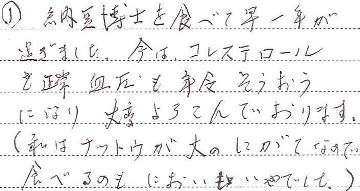 ① 納豆博士を食べて早一年が
過ぎました。今は、コレステロール
も正常 血圧も年令そうおう
になり 大変よろこんでおります。
(私はナットウが大のにがてなので
食べるのも においもいやでした。)